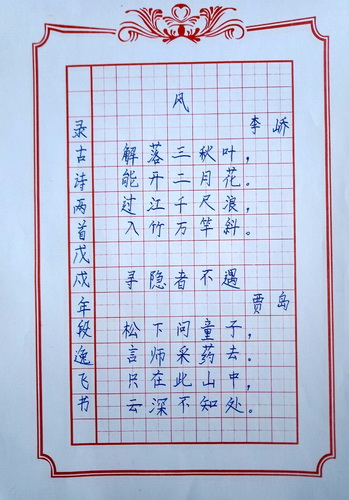 风
李峤
解落三秋叶，
能开二月花。
过江千尺浪，
入竹万竿斜。
寻隐者不遇
贾岛
松下问童子，
言师采药去。
只在此山中，
云深不知处。
录古诗两首戊戌年段逸飞书